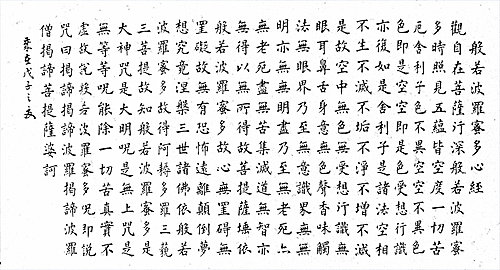 般若波羅蜜多心經
觀自在菩薩行深般若波羅蜜
多時照見五蘊皆空度一切苦
厄舍利子色不異空空不異色
色即是空空即是色受想行識
亦復如是舍利子是諸法空相
不生不滅不垢不淨不增不減
是故空中無色無受想行識無
眼耳鼻舌身意無色聲香味觸
法無眼界乃至無意識界無無
明亦無無明盡乃至無老死亦
無老死盡無苦集滅道無智亦
無得以無所得故菩提薩埵依
般若波羅蜜多故心無罣礙無
罣礙故無有恐怖遠離顛倒夢
想究竟涅槃三世諸佛依般若
波羅蜜多故得阿耨多羅三藐
三菩提故知般若波羅蜜多是
大神咒是大明咒是無上咒是
無等等呪能除一切苦真實不
虛故說般若波羅蜜多呪即說
咒曰揭諦揭諦波羅揭諦波羅
僧揭諦菩提薩婆訶
在戊子之